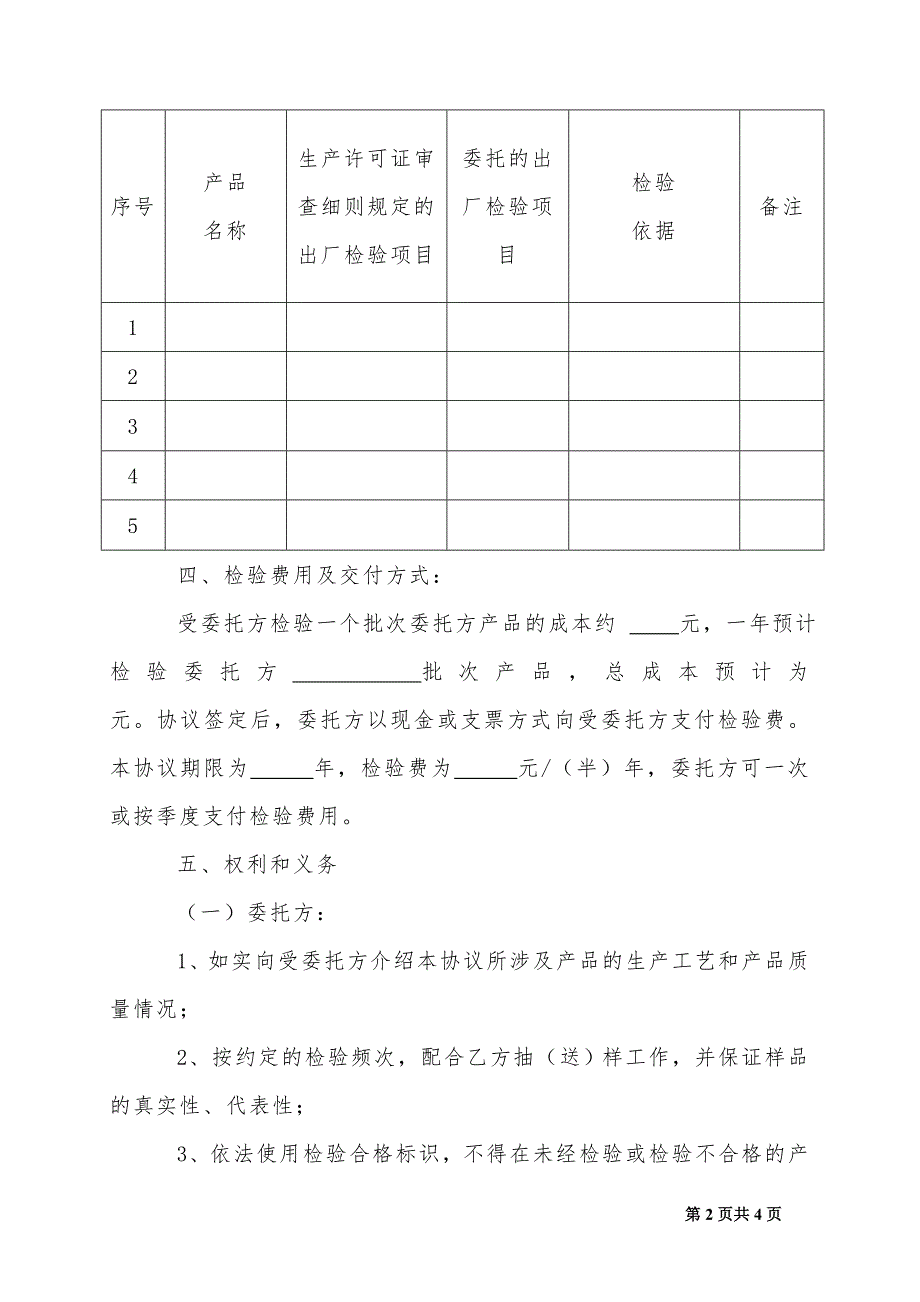 序号
产品
名称
生产许可证审
查细则规定的
出厂检验项目
委托的出
厂检验项
目
检验
依据
备注
1
2
3
4
5
四、检验费用及交付方式：
受委托方检验一个批次委托方产品的成本约 ____元，一年预计
检验委托方__________批次产品，总成本预计为
元。协议签定后，委托方以现金或支票方式向受委托方支付检验费。
本协议期限为_____年，检验费为_____元/（半）年，委托方可一次
或按季度支付检验费用。
五、权利和义务
（一）委托方：
1、如实向受委托方介绍本协议所涉及产品的生产工艺和产品质
量情况；
2、按约定的检验频次，配合乙方抽（送）样工作，并保证样品
的真实性、代表性；
3、依法使用检验合格标识，不得在未经检验或检验不合格的产
第 2 页共 4 页